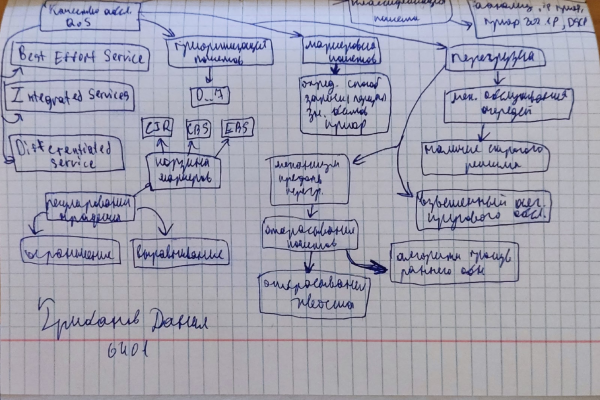 Качество обсл.
QoS
Классификация
пакета
приор, DSCP
Best Effort Service
Integrated Services
Differentiated
service
приоритизация
пакетов
0..7
маркировка
пакетов
опред. способ
записи
зн. битов
приор
перегрузка
мех. обслуживания
очередей
наличие строгого
режима
взвешенный
кругового обсл.
CIR
CBS
EBS
корзина
маркеров
регулирование
трафика
ограничение
выравнивание
механизм
предотв.
перегр.
отбрасывание
пакетов
отбрасывание
хвоста
алгоритм произв
раннего обн
Грибанов Данил
6401